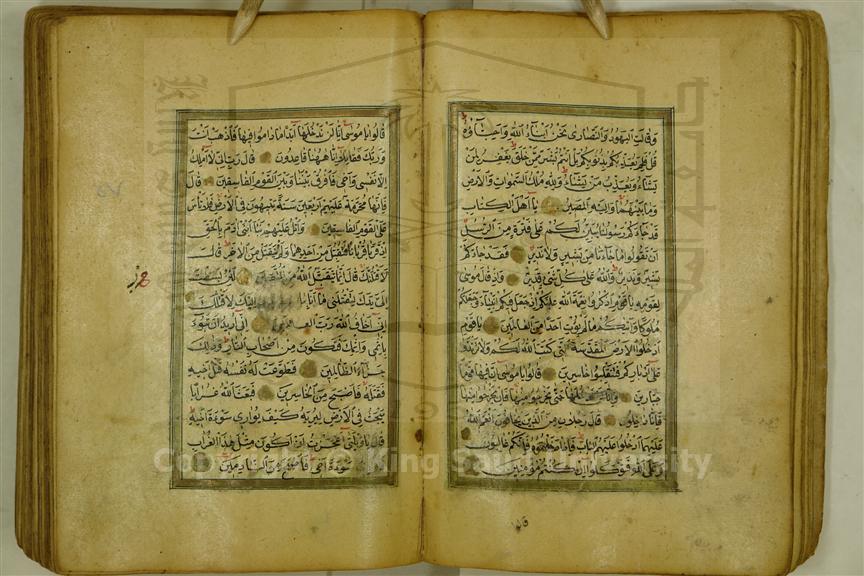 وقالت اليهود والنصارى نحن ابناء الله واحباؤه
قل فلم يعذبكم بذنوبكم بل انتم بشر ممن خلق يغفر لمن
يشاء ويعذب من يشاء ولله ملك السموات والارض
وما بينهما واليه المصير يا اهل الكتاب
قد جاءكم رسولنا يبين لكم على فترة من الرسل
ان تقولوا ما جاءنا من بشير ولا نذير فقد جاءكم
بشير ونذير والله على كل شئ قدير واذ قال موسى
لقومه يا قوم اذكروا نعمة الله عليكم اذ جعل فيكم انبياء وجعلكم
ملوكا واتيكم ما لم يؤت احدا من العالمين يا قوم
ادخلوا الارض المقدسة التى كتب الله لكم ولا ترتدوا
على ادباركم فتنقلبوا خاسرين قالوا يا موسى ان فيها قوما
جبارين وانا لن ندخلها حتى يخرجوا منها فان يخرجوا منها
فانا داخلون قال رجلان من الذين يخافون انعم الله
عليهما ادخلوا عليهم الباب فاذا دخلتموه فانكم غالبون
وعلى الله فتوكلوا ان كنتم مؤمنين
قالوا
قالوا يا موسى انا لن ندخلها ابدا ما داموا فيها فاذهب انت
وربك فقاتلا انا ههنا قاعدون قال رب انى لا املك
الا نفسى واخى فافرق بيننا وبين القوم الفاسقين قال
فانها محرمة عليهم اربعين سنة يتيهون فى الارض فلا تأس
على القوم الفاسقين واتل عليهم نبأ ابنى ادم بالحق
اذ قربا قربانا فتقبل من احدهما ولم يتقبل من الاخر قال
لاقتلنك قال انما يتقبل الله من المتقين لئن بسطت
الى يدك لتقتلنى ما انا اليك لاقتلك
انى اخاف الله رب العالمين انى اريد ان تبوء
باثمى واثمك فتكون من اصحاب النار وذلك
جزاء الظالمين فطوعت له نفسه قتل اخيه
فقتله فاصبح من الخاسرين فبعث الله غرابا
يبحث فى الارض ليريه كيف يوارى سوءة اخيه
قال يا ويلتى اعجزت ان اكون مثل هذا الغراب
سوءة اخى فاصبح من النادمين
Copyright © King Saud University